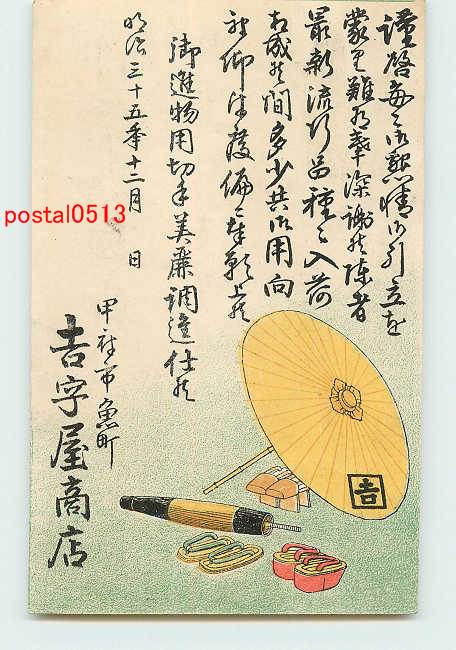 謹啓毎々御懇情御引立を
蒙り難有奉深謝候陳者
最新流行品種々入荷
相成候間多少共御用向
被仰付度偏ニ奉願上候
御進物用切手美麗調進仕候
明治三十五年十二月 日
甲府市魚町
吉字屋商店
吉
postal0513